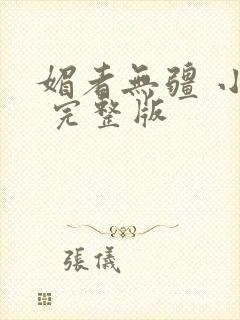 媚者無疆 小
完整版
張儀